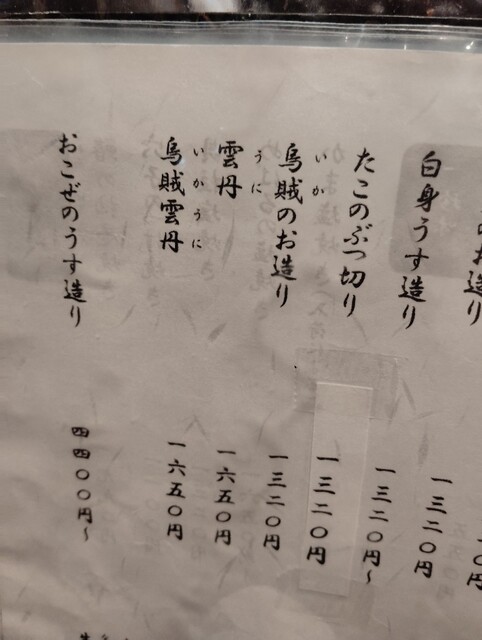 〇円
のお造り 一三二〇円
白身うす造り 一三二〇円〜
たこのぶつ切り 一三二〇円
いか
烏賊のお造り 一三二〇円
うに
雲丹 一六五〇円
いかうに
烏賊雲丹 一六五〇円
おこぜのうす造り 四四〇〇円〜